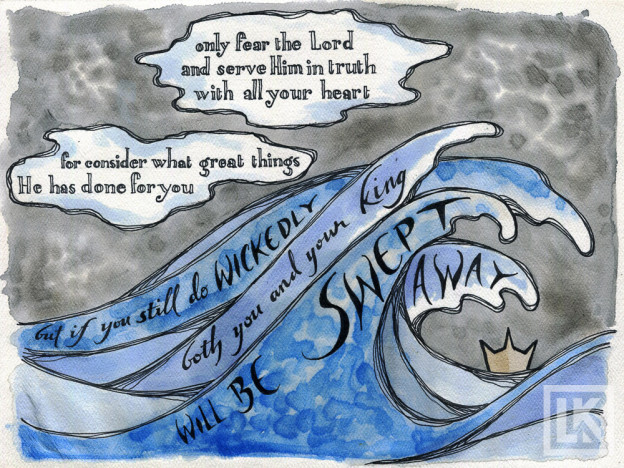 only fear the Lord
and serve Him in truth
with all your heart
for consider what great things
He has done for you
but if you still do WICKEDLY
both you and your king
WILL BE SWEPT AWAY
LK